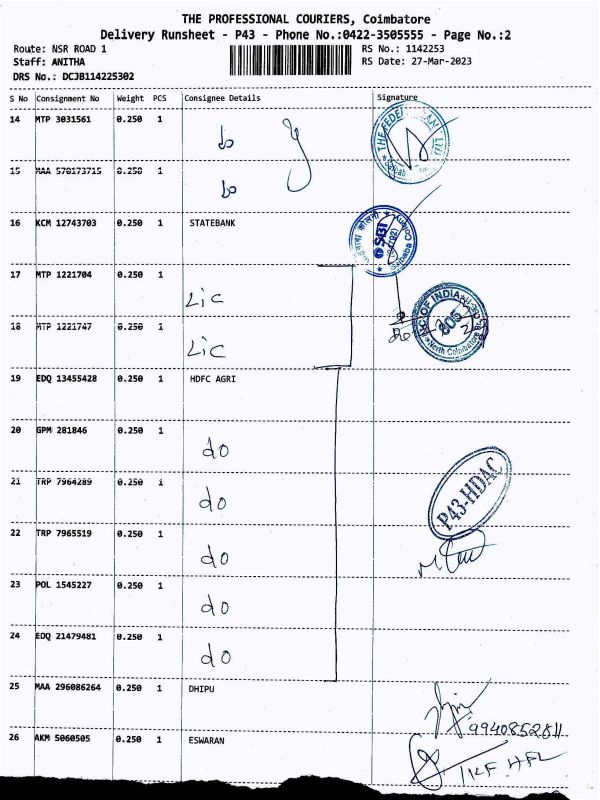 THE PROFESSIONAL COURIERS, Coimbatore
Delivery Runsheet - P43 - Phone No.:0422-3505555 - Page No.:2
Route: NSR ROAD 1 RS No.: 1142253
Staff: ANITHA RS Date: 27-Mar-2023
DRS No.: DCJB114225302
S No Consignment No Weight PCS Consignee Details Signature
14 MTP 3031561 0.250 1
do
15 MAA 570173715 0.250 1
do
16 KCM 12743703 0.250 1 STATEBANK
SBI
17 MTP 1221704 0.250 1
LIC
18 MTP 1221747 0.250 1
LIC
805
North Coimbatore
19 EDQ 13455428 0.250 1 HDFC AGRI
20 GPM 281846 0.250 1
do
21 TRP 7964289 0.250 1
do
P43-HDAC
22 TRP 7965519 0.250 1
do
23 POL 1545227 0.250 1
do
24 EDQ 21479481 0.250 1
do
25 MAA 296086264 0.250 1 DHIPU
9940852811
26 AKM 5060505 0.250 1 ESWARAN